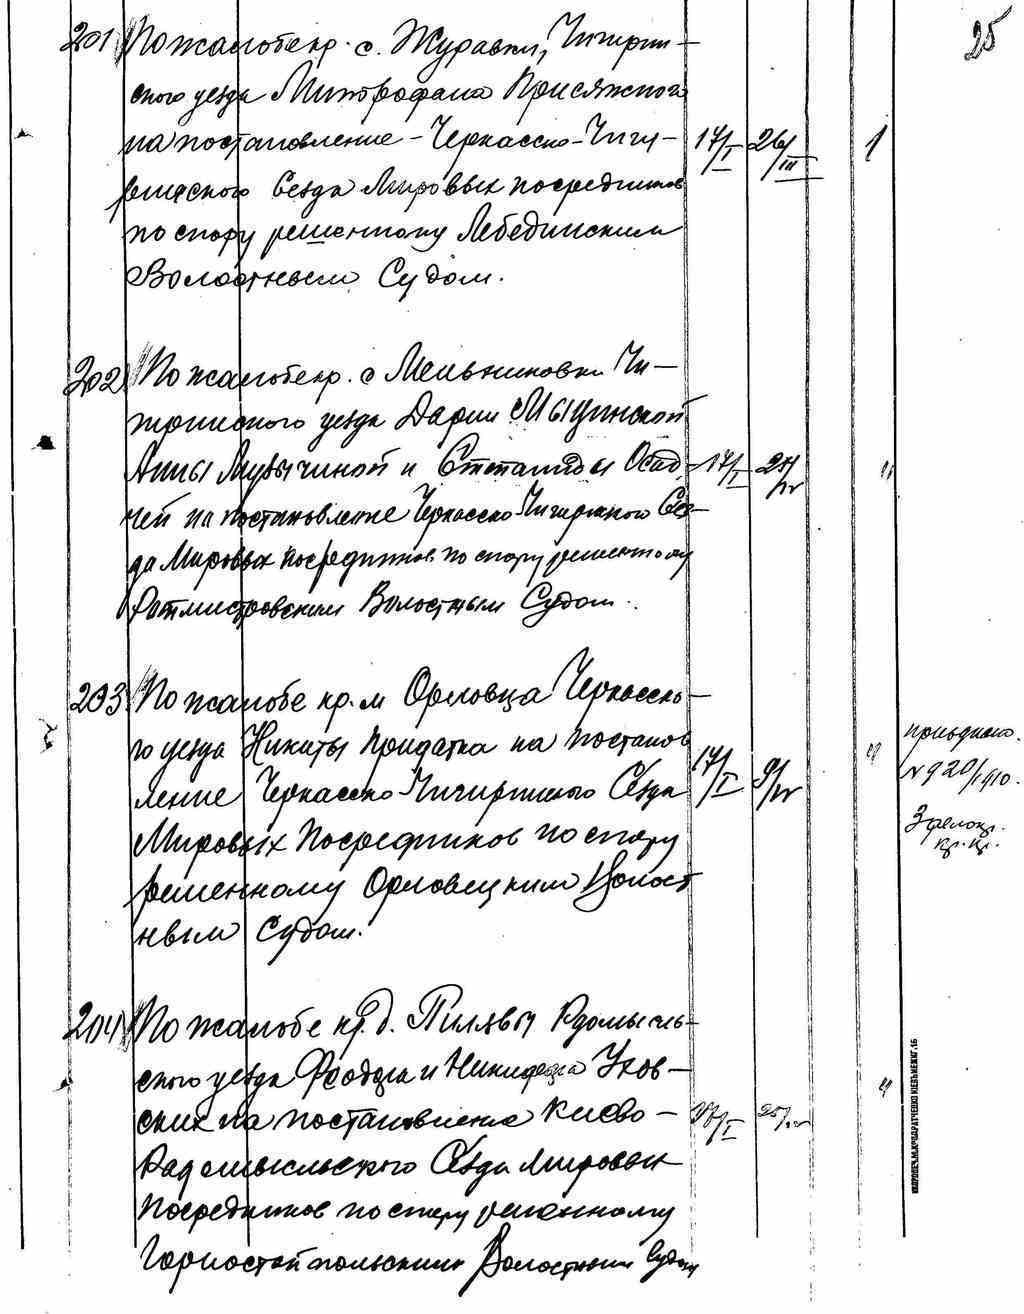 25
201 По жалобе кр. с. Журавки, Чигирин-
ского уезда Митрофана Присяжного
на постановление Черкасско-Чиги-
ринского Съезда Мировых посредников
по спору решенному Лебединским
Волостным Судом.
17/I 26/III 1
202 По жалобе кр. с. Мельниковки Чи-
гиринского уезда Дарии
Анны и Степаниды Осад-
чей на постановление Черкасско-Чигиринского Съез-
да Мировых посредников по спору решенному
Ротмистровским Волостным Судом.
17/I "
203 По жалобе кр. м. Орловца Черкасско-
го уезда Никиты Придатка на постанов
ление Черкасско-Чигиринского Съезда
Мировых Посредников по спору
решенному Орловецким Волост
ным Судом.
17/I 9/IV "
№ 920/1910.
204 По жалобе кр. д. Пилявы Радомысль-
ского уезда Феодора и Никифора
ских на постановление Киево-
Радомысльского Съезда Мировых
Посредников по спору решенному
Горностайпольским Волостным Судом
"